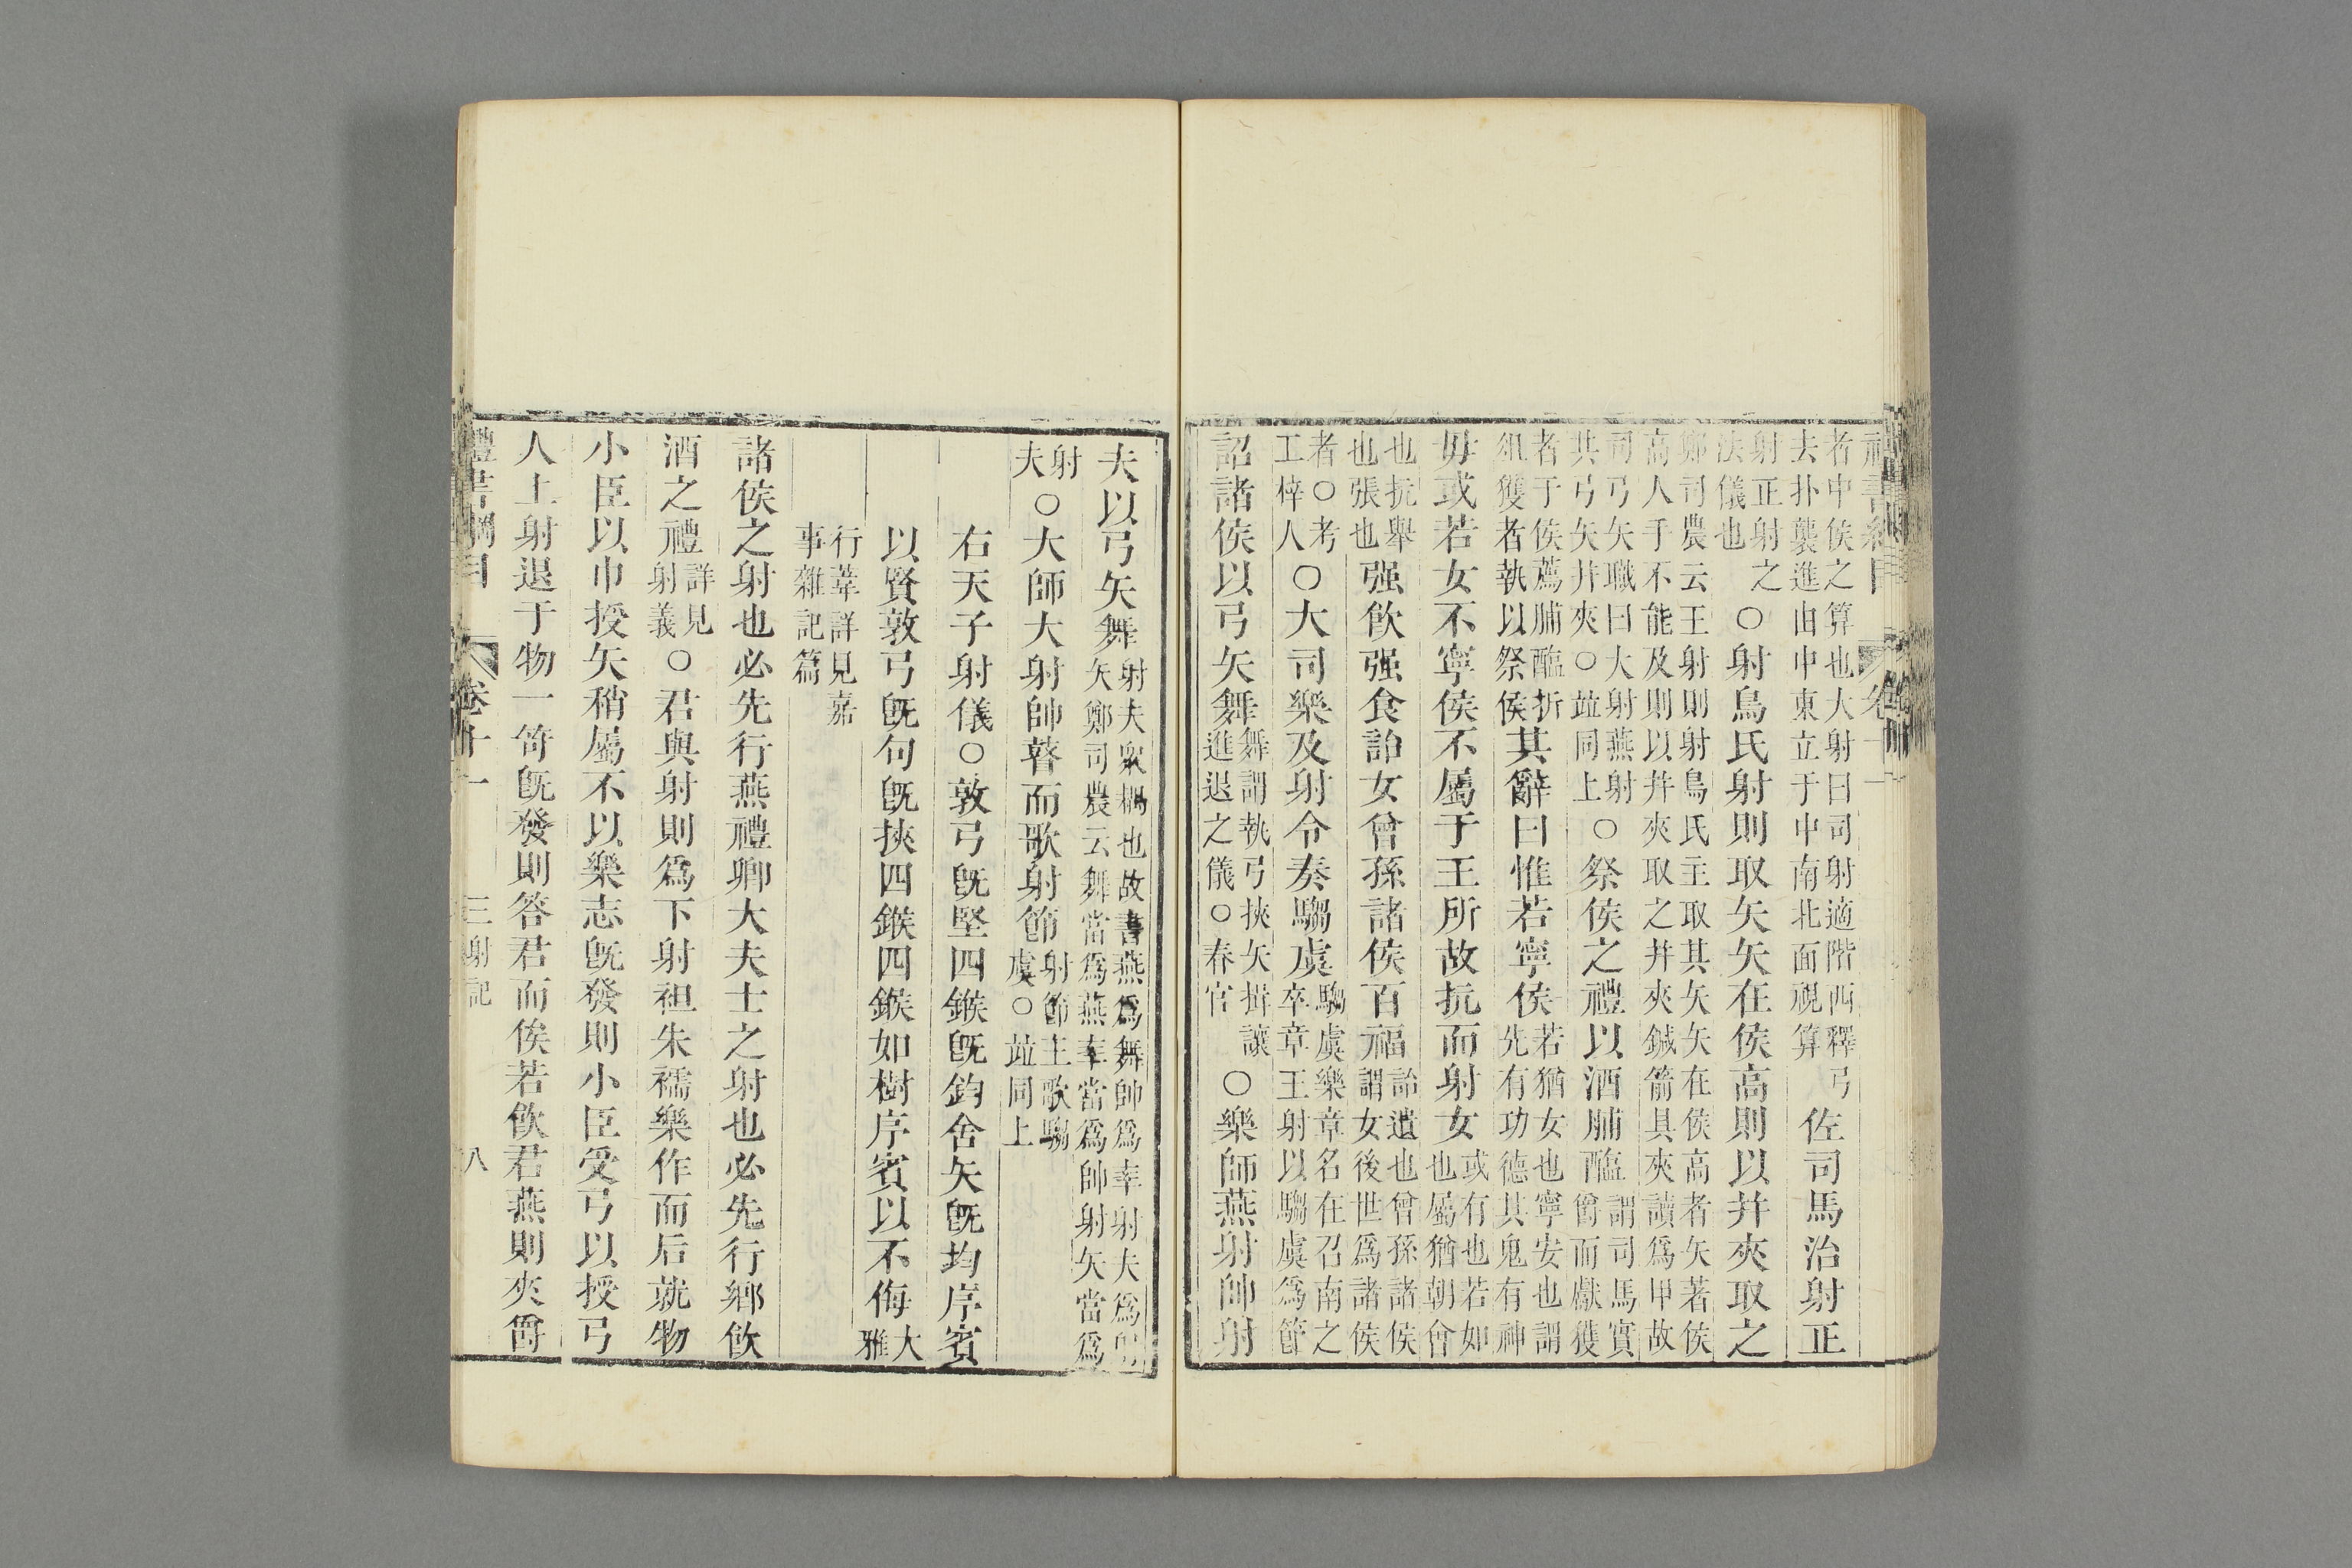 禮書綱目 卷十一
者中侯之算也大射曰司射適階西釋弓
去扑襲進由中東立于中南北面視算
佐司馬治射正
射正射之
法儀也
○射鳥氏射則取矢矢在侯高則以并夾取之
鄭司農云王射則射鳥氏主取其矢矢在侯高者矢著侯
高人手不能及則以并夾取之并夾鍼箭具夾讀爲甲故
司弓矢職曰大射燕射
共弓矢并夾○竝同上
○祭侯之禮以酒脯醢
謂司馬實
爵而獻獲
者于侯薦脯醢折
俎獲者執以祭侯
其辭曰惟若寧侯
若猶女也寧安也謂
先有功德其鬼有神
毋或若女不寧侯不屬于王所故抗而射女
或有也若如
也屬猶朝會
也抗舉
也張也
强飮强食詒女曾孫諸侯百福
詒遺也曾孫諸侯
謂女後世爲諸侯
者○考
工梓人
○大司樂及射令奏騶虞
騶虞樂章名在召南之
卒章王射以騶虞爲節
詔諸侯以弓矢舞
舞謂執弓挾矢揖讓
進退之儀○春官
○樂師燕射帥射
夫以弓矢舞
射夫衆耦也故書燕爲舞帥爲率射夫爲射
矢鄭司農云舞當爲燕率當爲帥射矢當爲
射
夫
○大師大射帥瞽而歌射節
射節王歌騶
虞○竝同上
右天子射儀○敦弓旣堅四鍭旣鈞舍矢旣均序賓
以賢敦弓旣句旣挾四鍭四鍭如樹序賓以不侮
大
雅
行葦詳見嘉
事雜記篇
諸侯之射也必先行燕禮卿大夫士之射也必先行鄕飮
酒之禮
詳見
射義
○君與射則爲下射袒朱襦樂作而后就物
小臣以巾授矢稍屬不以樂志旣發則小臣受弓以授弓
人上射退于物一笴旣發則答君而俟若飮君燕則夾爵
禮書綱目 卷十一 三射記 八